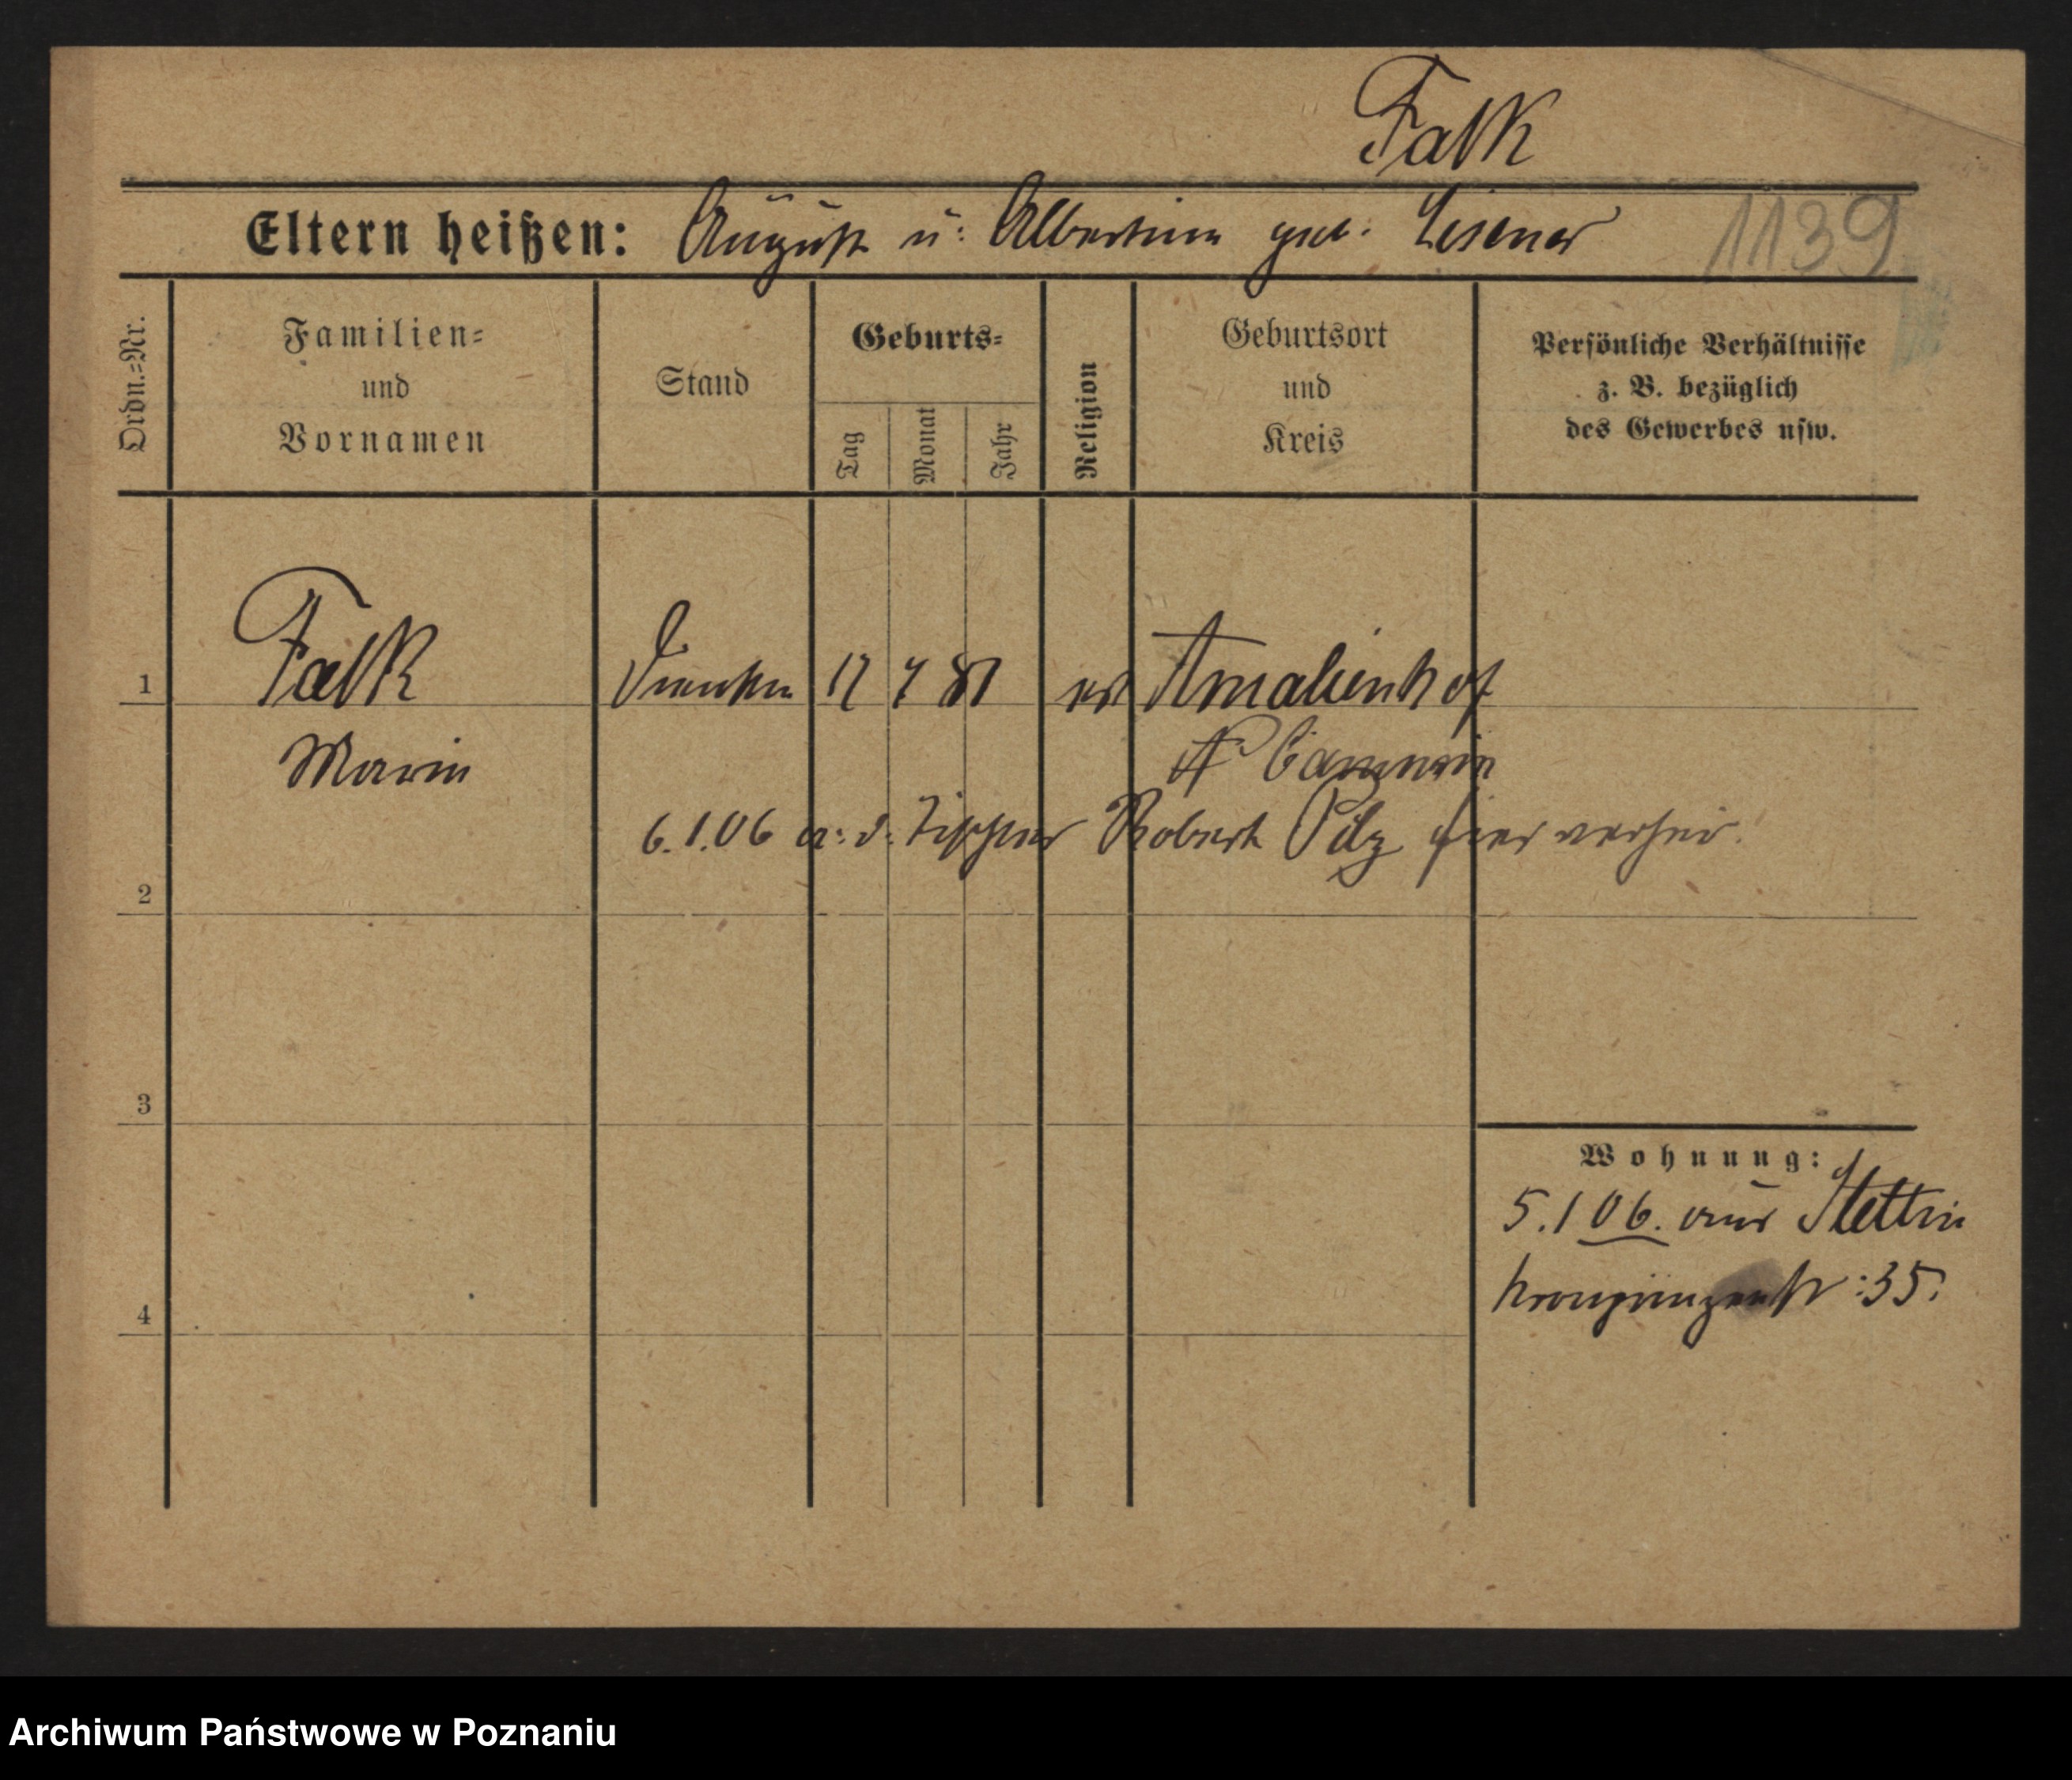 Falk
Eltern heißen: August u: Albertine geb: Lisener
1139
Ordn.=Nr.
Familien=
und
Vornamen
Stand
Geburts=
Tag
Monat
Jahr
Religion
Geburtsort
und
Kreis
Persönliche Verhältnisse
z. B. bezüglich
des Gewerbes usw.
1 Falk 81 ev Amalienhof
Marie Cammin
6.1.06 a: d: Tischler Robert Pilz hier verheir.
2
3
4
Wohnung:
5.1 06. aus Stettin
Kronprinzenstr :35.
Archiwum Państwowe w Poznaniu